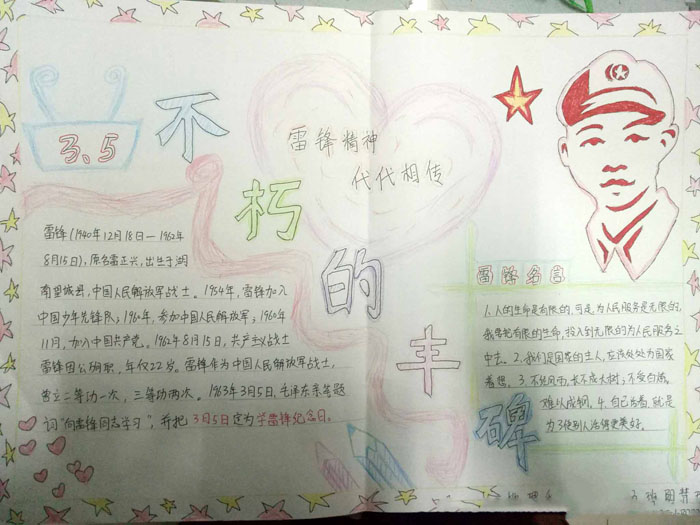 3.5
不
朽
的
丰
碑
雷锋精神
代代相传
雷锋(1940年12月18日—1962年
8月15日),原名雷正兴,出生于湖
南望城县,中国人民解放军战士。1954年,雷锋加入
中国少年先锋队;1960年,参加中国人民解放军;1960年
11月,加入中国共产党。1962年8月15日,共产主义战士
雷锋因公殉职,年仅22岁。雷锋作为中国人民解放军战士,
曾立二等功一次,三等功两次。1963年3月5日,毛泽东亲笔题
词"向雷锋同志学习",并把3月5日定为学雷锋纪念日。
雷锋名言
1.人的生命是有限的,可是,为人民服务是无限的,
我要把有限的生命,投入到无限的为人民服务之
中去。2.我们是国家的主人,应该处处为国家
着想。3.不经风雨,长不成大树;不受百炼,
难以成钢。4.自己活着,就是
为了使别人活得更美好。